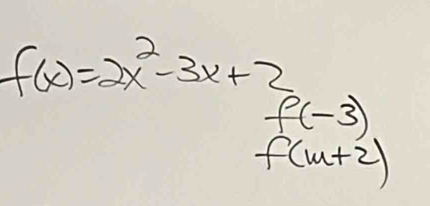 f(x)=2x²-3x+2
f(-3)
f(m+2)